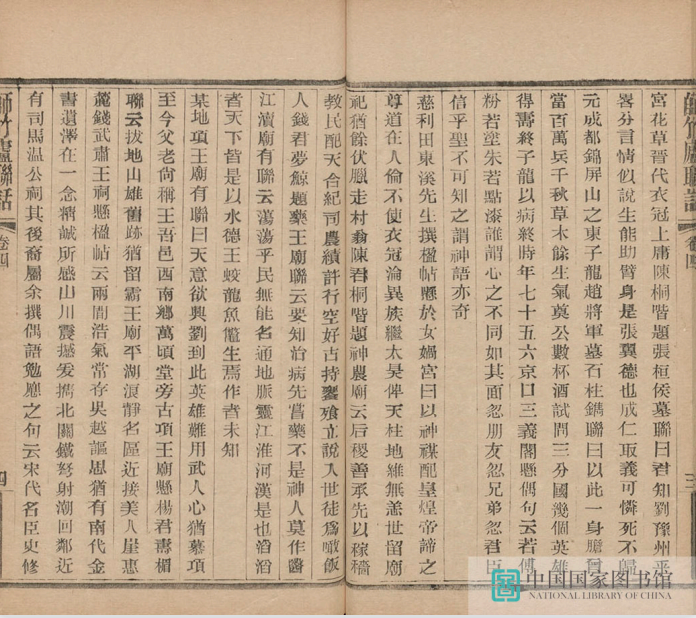 師竹廬聯話 卷四 三
宮花草晉代衣冠上庸陳桐階題張桓侯墓聯曰君知劉豫州乎
畧分言情似說生能助臂身是張翼德也成仁取義可憐死不歸
元成都錦屏山之東子龍趙將軍墓石柱鐫聯曰以此一身膽當
當百萬兵千秋草木餘生氣奠公數杯酒試問三分國幾個英雄
得壽終子龍以病終時年七十五六京口三義閣懸偶句云若傅
粉若塗朱若點漆誰謂心之不同如其面忽朋友忽兄弟忽君臣
信乎聖不可知之謂神語亦奇
慈利田東溪先生撰楹帖懸於女媧宮曰以神禖配皇煌帝諦之
尊道在人倫不使衣冠淪異族繼太昊俾天柱地維無恙世留廟
祀猶餘伏臘走村翁陳君桐階題神農廟云后稷善承先以稼穡
教民配天合紀司農績許行空好古持饔飧立說入世徒爲噉飯
人錢君夢鯨題藥王廟聯云要知治病先嘗藥不是神人莫作醫
江瀆廟有聯云蕩蕩乎民無能名通地脈靈江淮河漢是也滔滔
者天下皆是以水德王蛟龍魚鼈生焉作者未知
某地項王廟有聯曰天意欲興劉到此英雄難用武人心猶慕項
至今父老尙稱王吾邑西南鄉萬頃堂旁古項王廟懸楊君壽楣
聯云拔地山雄舊跡猶留霸王廟平湖湏靜名區近接美人崖惠
麓錢武肅王祠懸楹帖云兩間浩氣常存吳越謳思猶有南代金
書遺澤在一念精誠所感山川震撼爰擕北關鐵弩射潮回鄰近
有司馬温公祠其後裔屬余撰偶語勉應之句云宋代名臣史修
師竹廬聯話 卷四 四
中国国家图书馆
NATIONAL LIBRARY OF CHINA